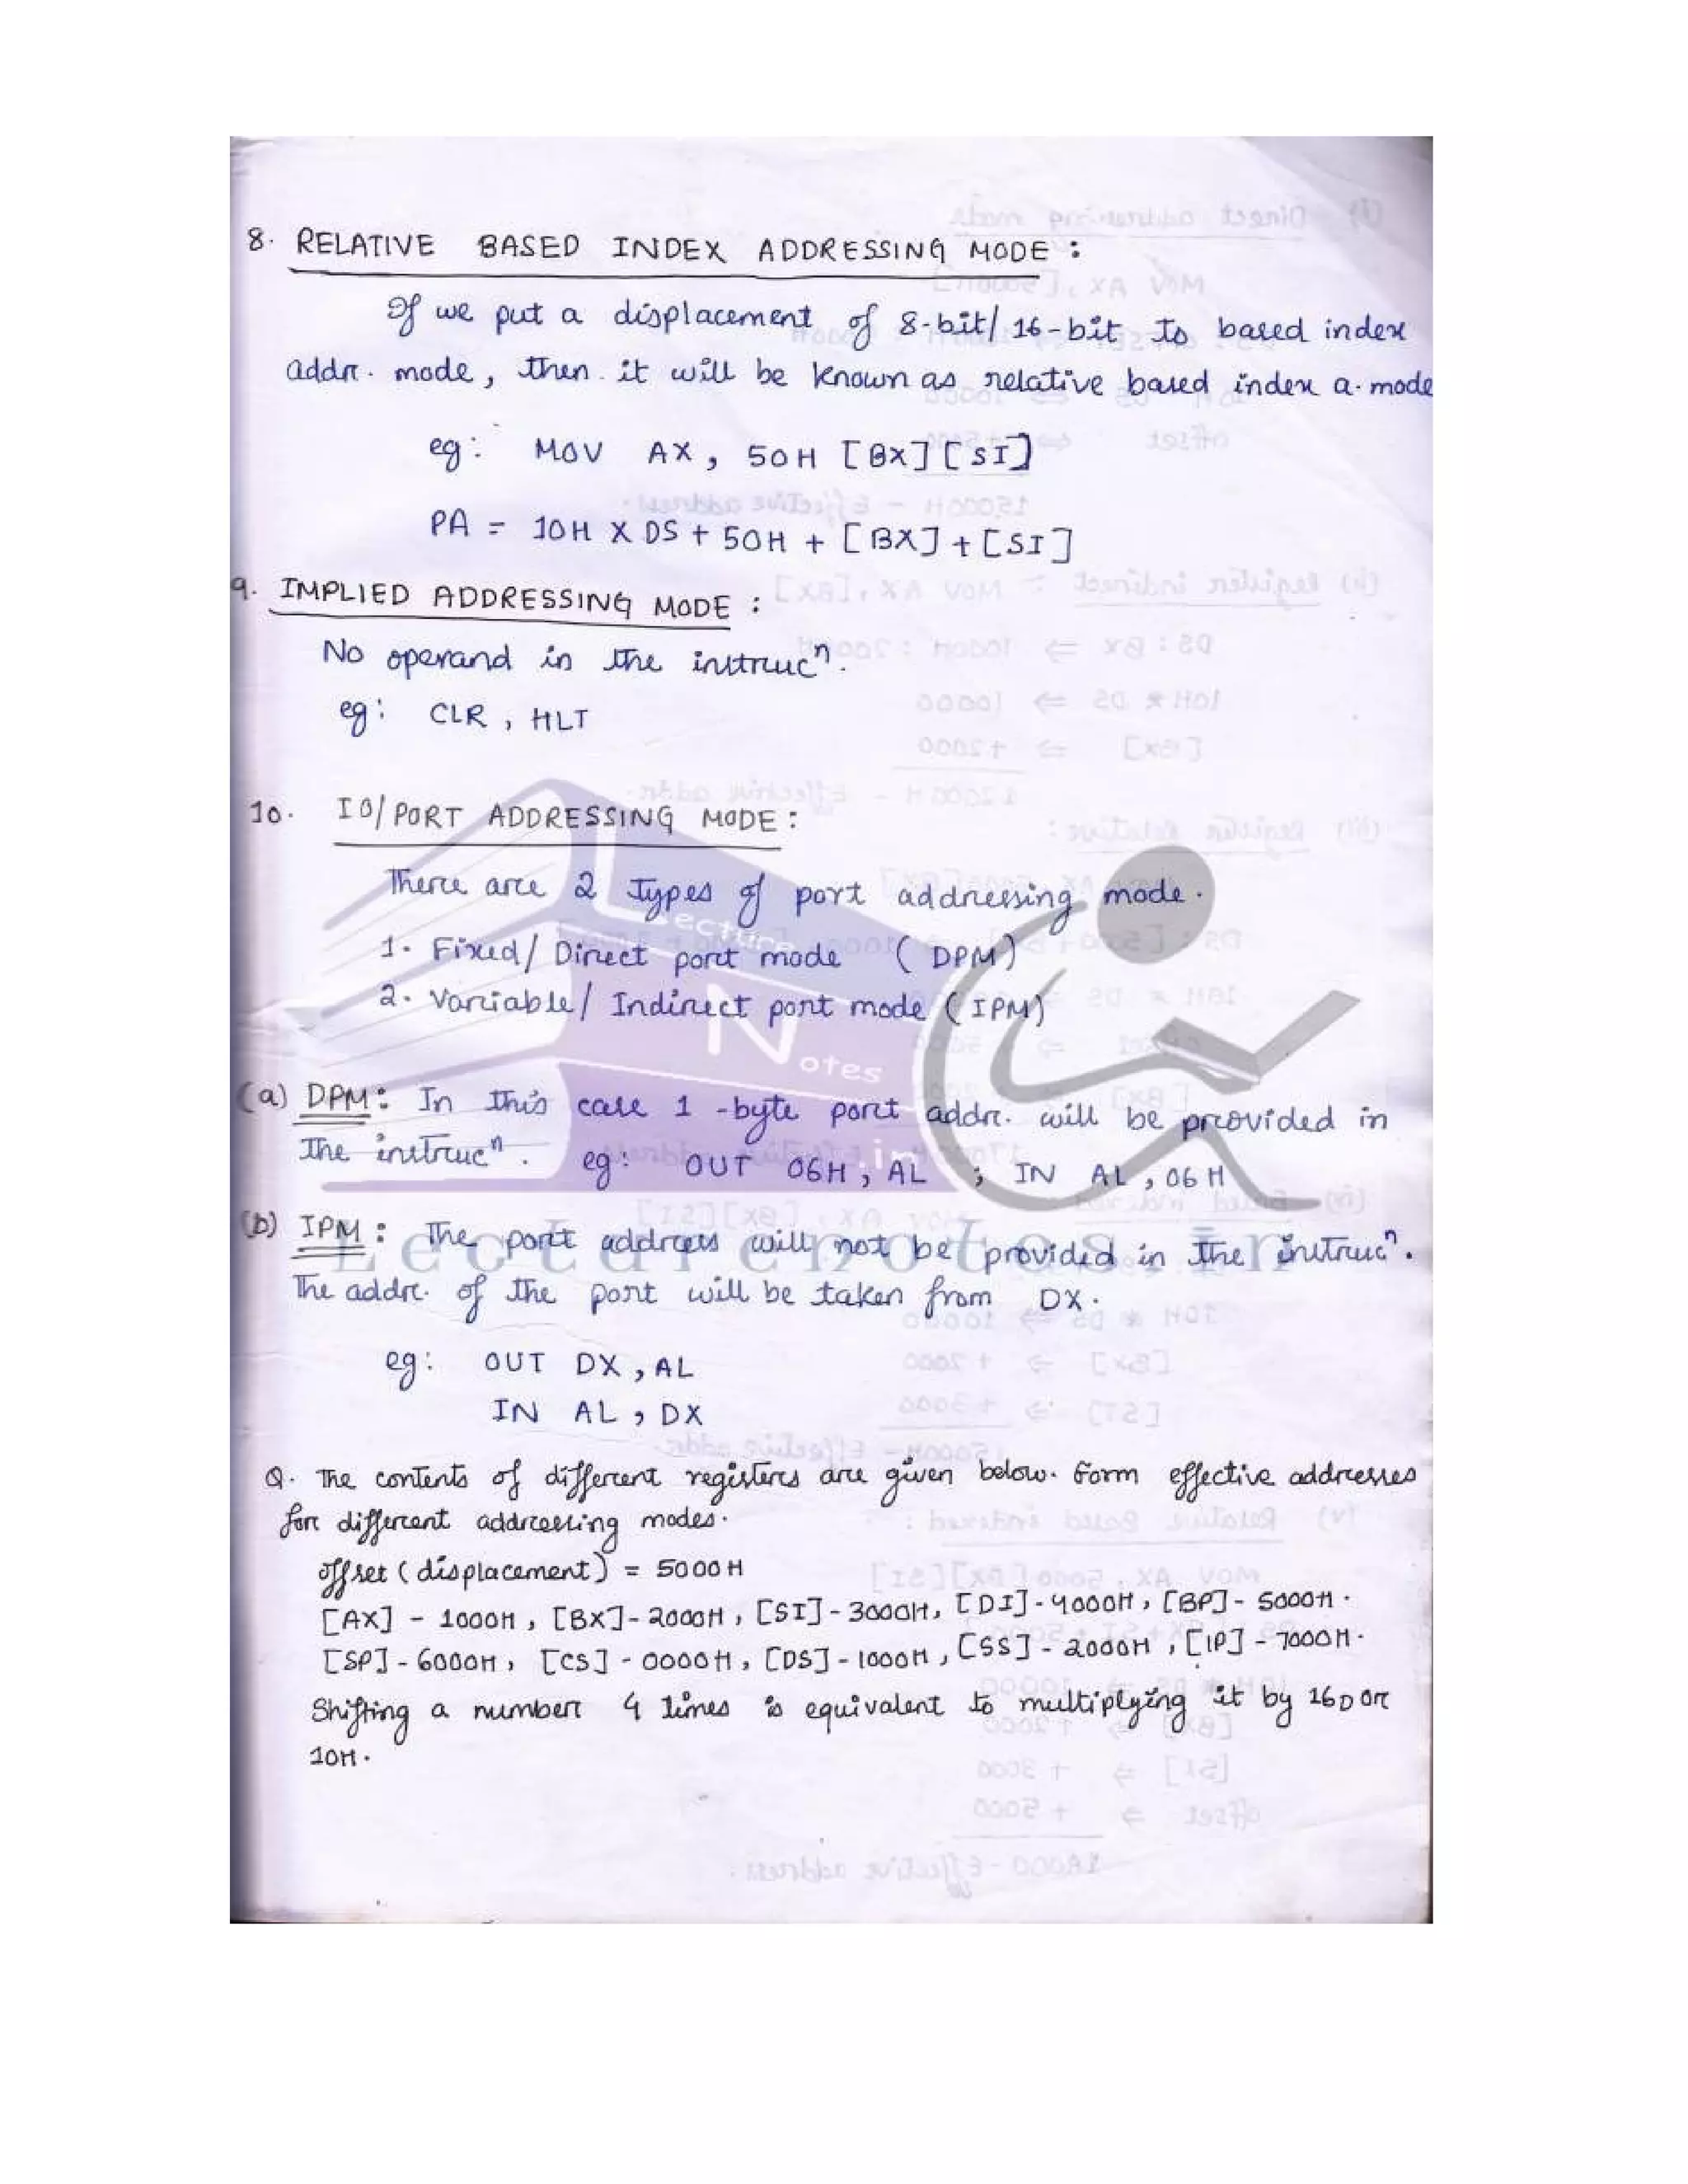 8. RELATIVE BASED INDEX ADDRESSING MODE :
If we put a displacement of 8-bit/ 16-bit to based index
addr. mode, then it will be known as relative based index a. mode
eg: MOV AX, 50H [BX][SI]
PA = 10H X DS + 50H + [BX] + [SI]
9. IMPLIED ADDRESSING MODE :
No operand in the instrucⁿ.
eg: CLR, HLT
10. IO/PORT ADDRESSING MODE :
There are 2 types of port addressing mode.
1. Fixed/ Direct port mode (DPM)
2. Variable/ Indirect port mode (IPM)
(a) DPM: In this case 1-byte port addr. will be provided in
the instrucⁿ. eg: OUT 06H, AL ; IN AL, 06H
(b) IPM : The port address will not be provided in the instrucⁿ.
The addr. of the port will be taken from DX.
eg: OUT DX, AL
IN AL, DX
Q. The contents of different registers are given below. Form effective addresses
for different addressing modes.
offset (displacement) = 5000H
[AX] - 1000H, [BX]- 2000H, [SI]- 3000H, [DI]- 4000H, [BP]- 5000H.
[SP] - 6000H, [CS] - 0000H, [DS] - 1000H, [SS] - 2000H, [IP] - 7000H.
Shifting a number 4 times is equivalent to multiplying it by 16D or
10H.
Lecture
Notes
.in
Lecturenotes.in